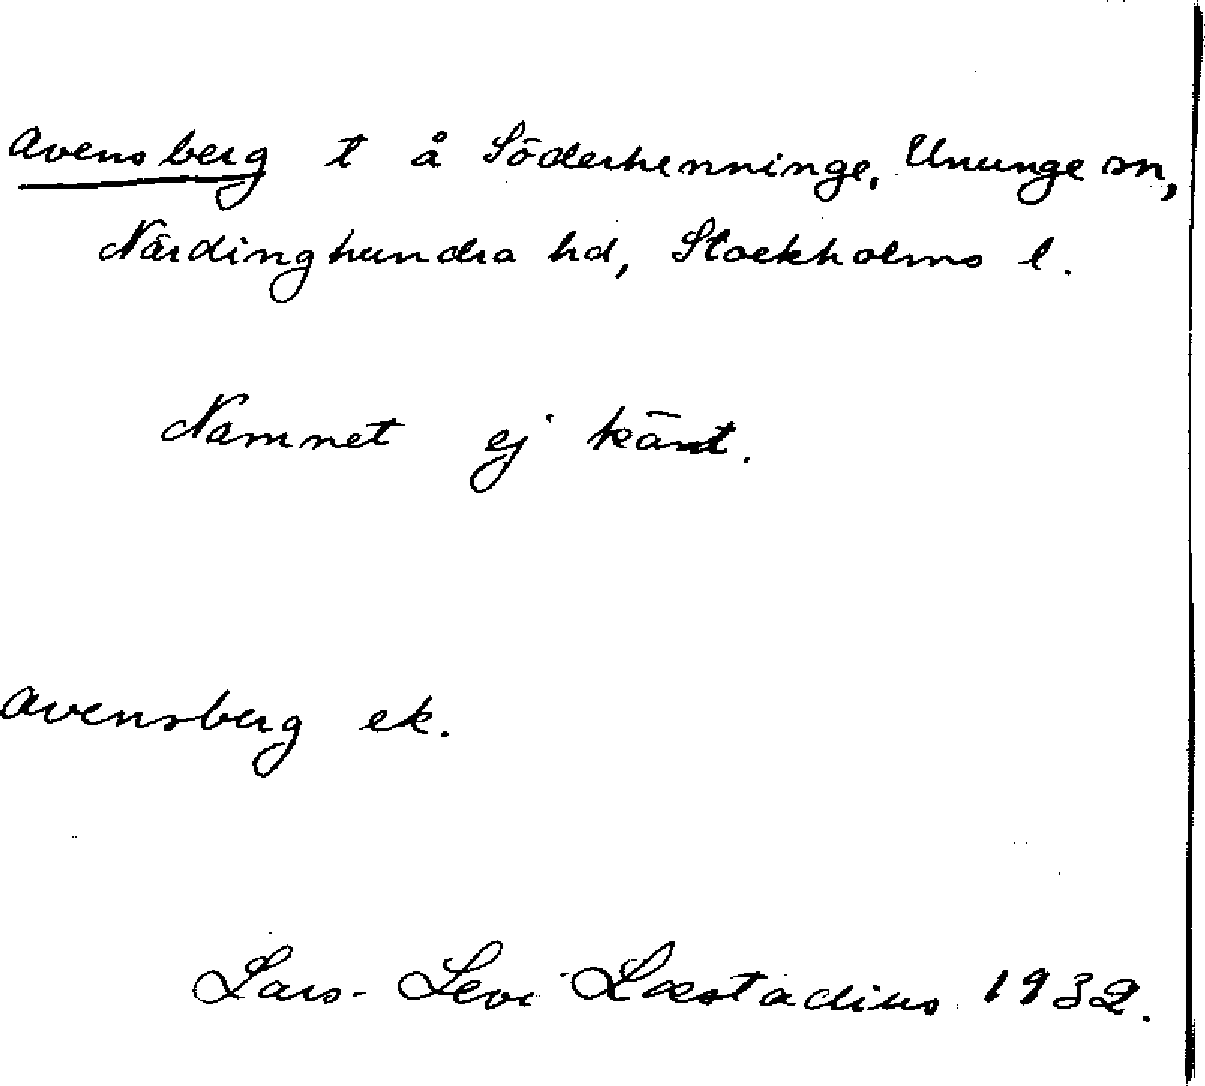 Avensberg t å Söderhenninge, Ununge sn,
Närdinghundra hd, Stockholms l.
Namnet ej känt.
Avensberg ek.
Lars-Levi Læstadius 1932.